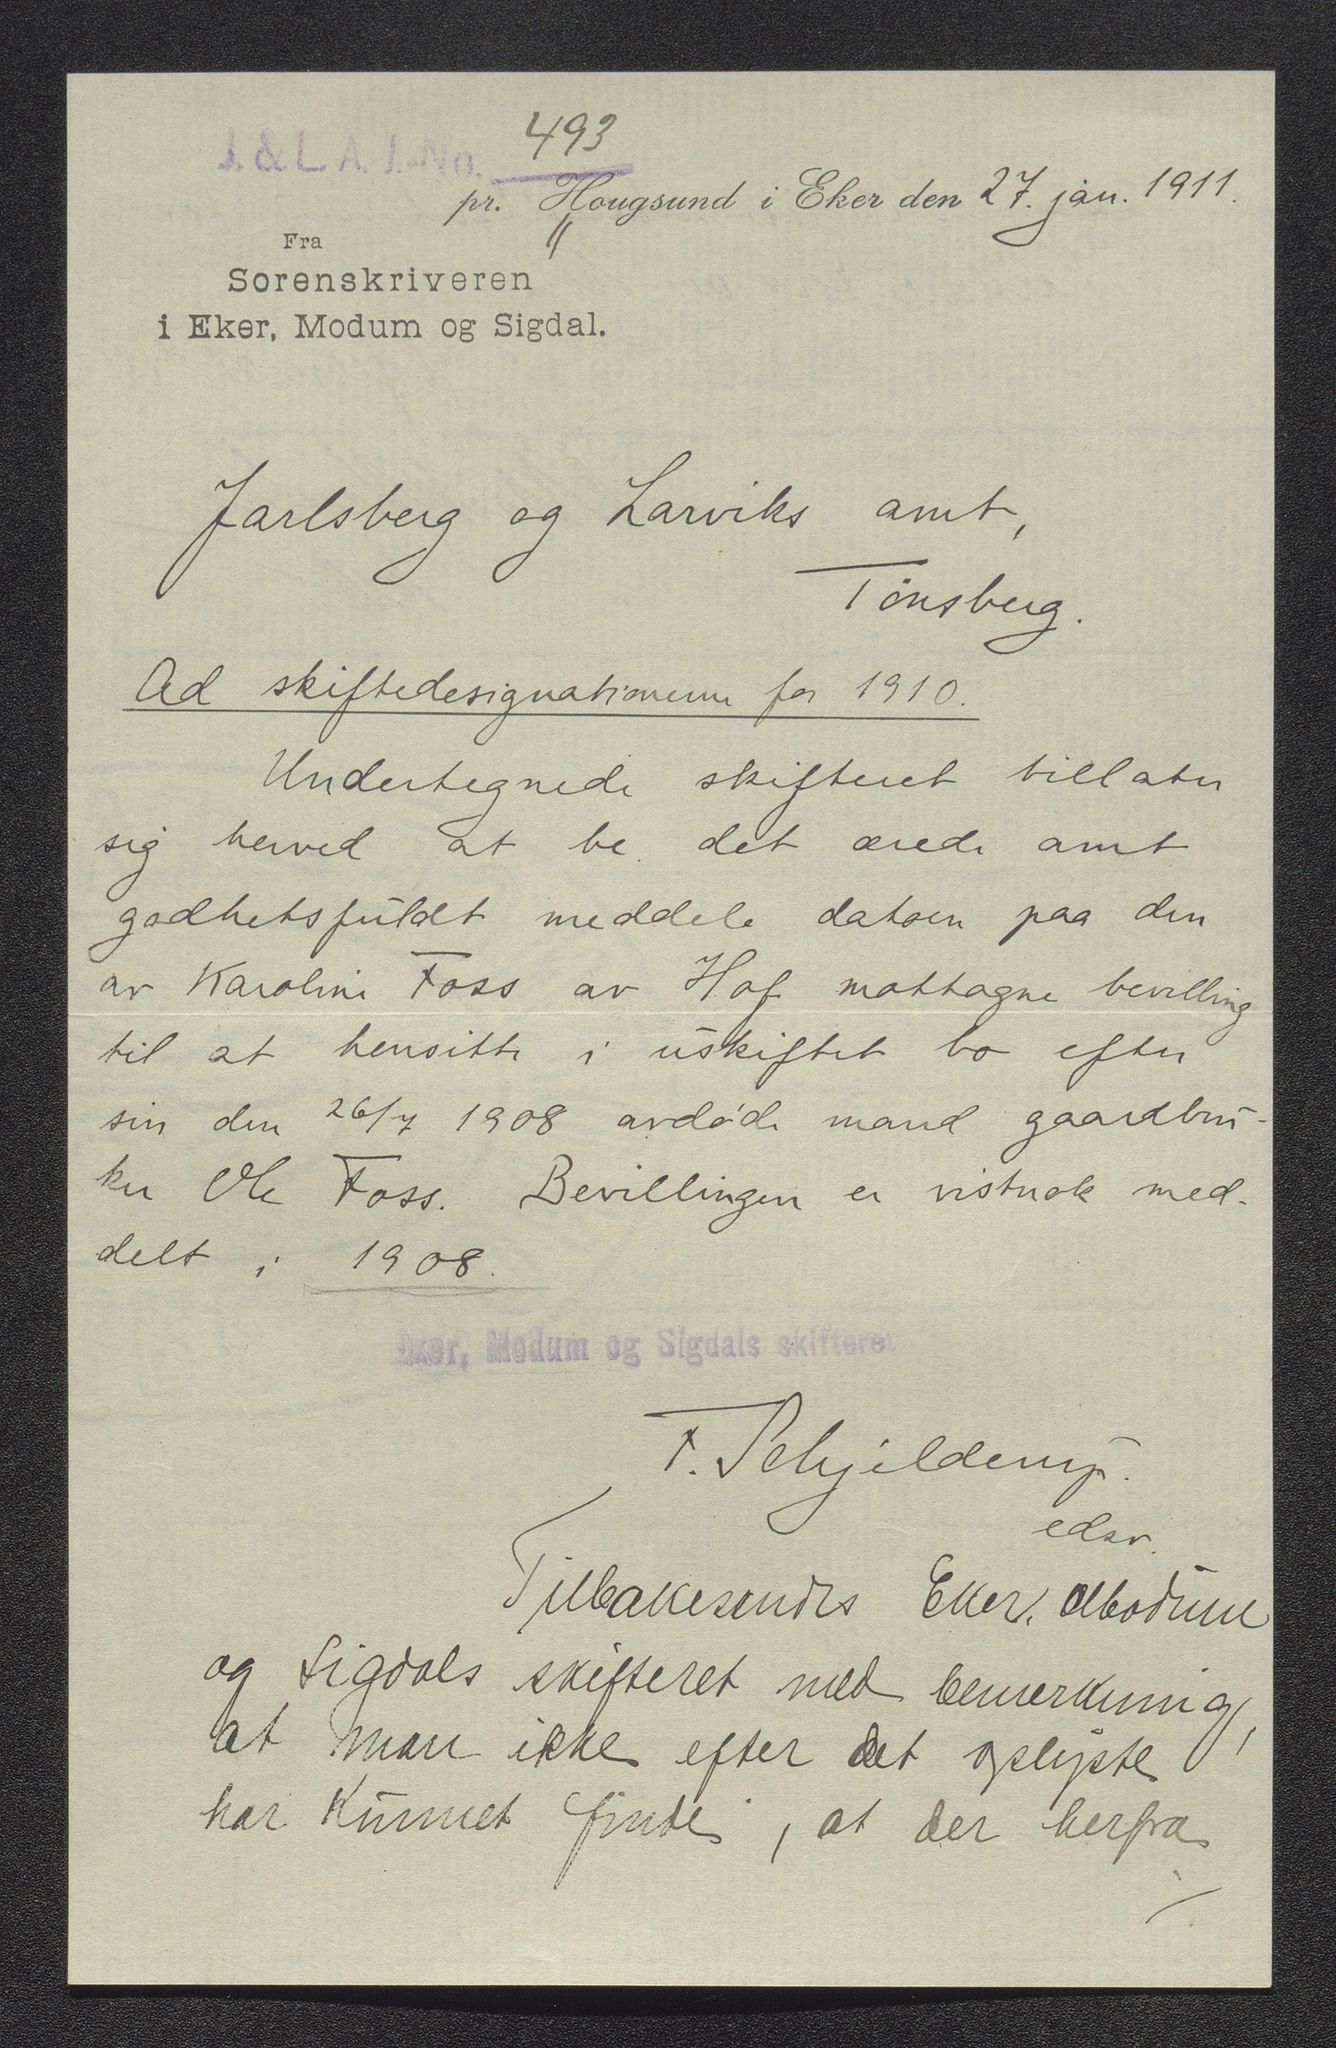 493
J. & L. A. J.-No.
pr. Hougsund i Eker den 27. jan. 1911.
Fra
Sorenskriveren
i Eker, Modum og Sigdal.
Jarlsberg og Larviks amt,
Tønsberg.
Ad skiftedesignationerne for 1910.
Undertegnede skifteret tillater
sig herved at be det ærede amt
godhetsfuldt meddele datoen paa den
av Karoline Foss av Hof mottagne bevilling
til at hensitte i uskiftet bo efter
sin den 26/7 1908 avdøde mand gaardbru-
ker Ole Foss. Bevillingen er vistnok med-
delt i 1908.
Eker, Modum og Sigdals skifteret
F. Schjelderup.
edsv.
Tilbakesendes Eker, Modum
og Sigdals skifteret med bemerkning,
at man ikke efter det oplyste
har kunnet finde, at der herfra
./.